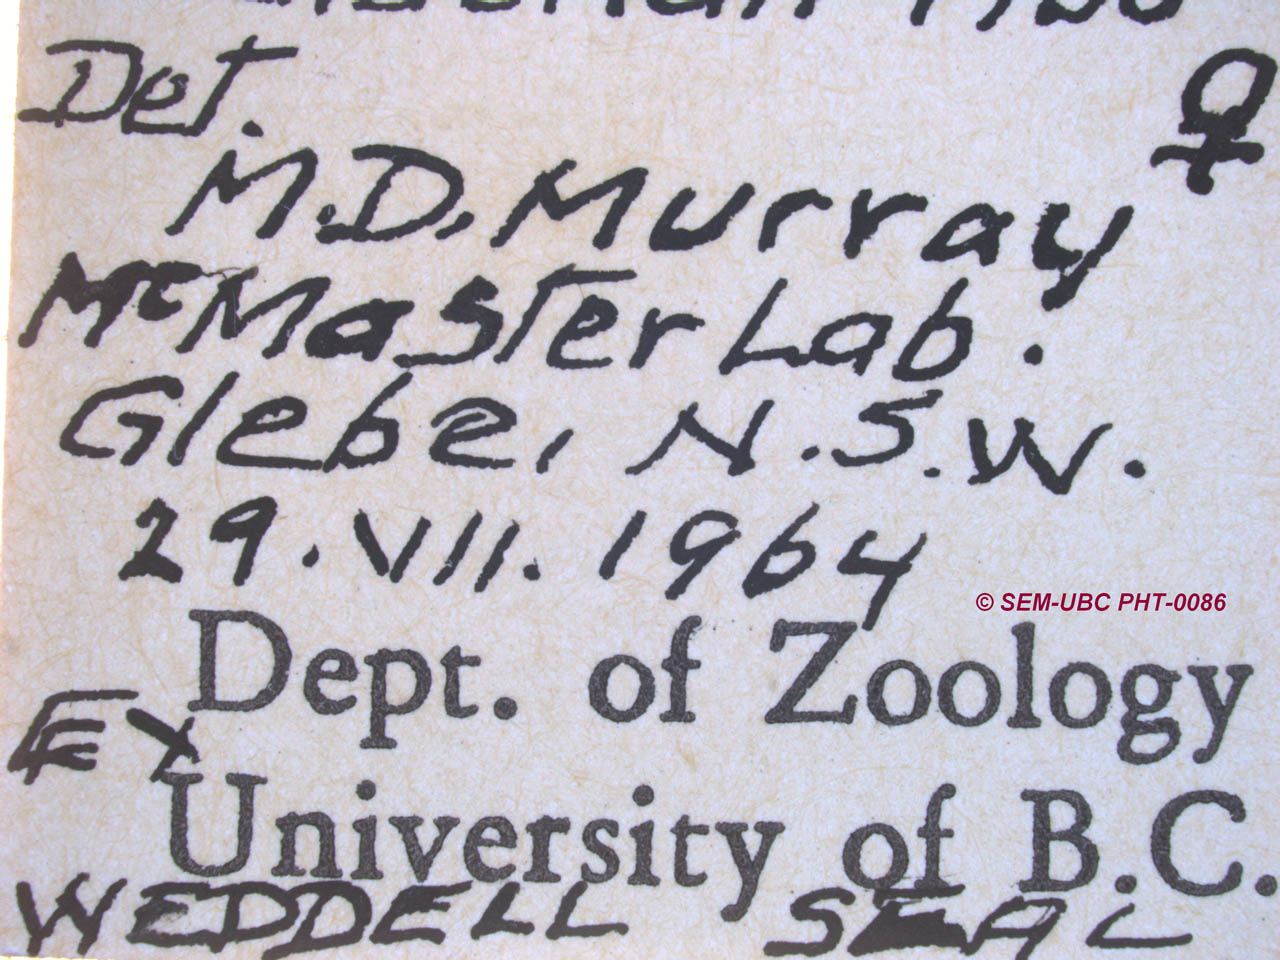 Det. ♀
M.D. Murray
McMaster Lab.
Glebe, N.S.W.
29.VII.1964
© SEM-UBC PHT-0086
Dept. of Zoology
Ex
University of B.C.
WEDDELL SEAL